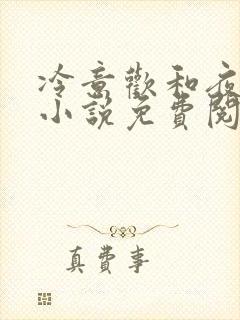 冷意歡和夜
小說免費閱
真費事